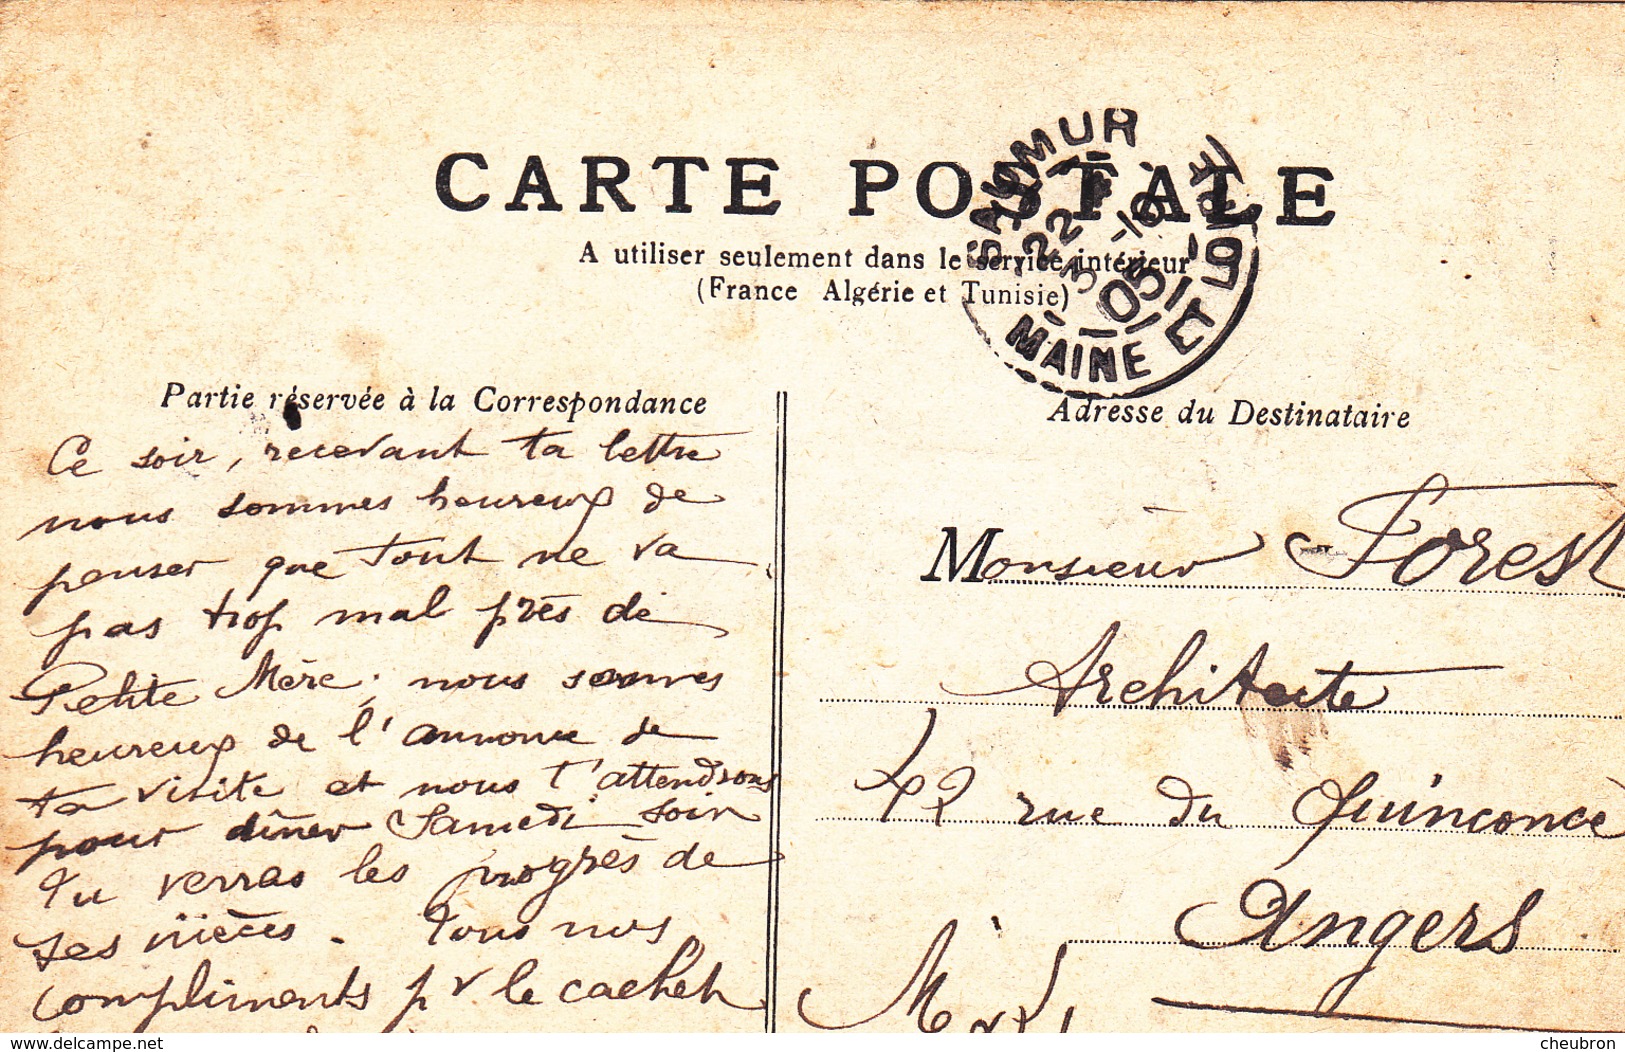 CARTE POSTALE
A utiliser seulement dans le service intérieur
(France Algérie et Tunisie)
SAUMUR
22
3 -10
05
MAINE ET LOIRE
Partie réservée à la Correspondance
Ce soir, recevant ta lettre
nous sommes heureux de
penser que tout ne va
pas trop mal près de
Petite Mère ; nous sommes
heureux de l'annonce de
ta visite et nous t'attendrons
pour dîner Samedi soir
Tu verras les progrès de
tes nièces. Tous nos
compliments pr le cachet
Adresse du Destinataire
Monsieur Forest
Architecte
42 rue du Quinconce
Angers
delcampe.net
cheubron